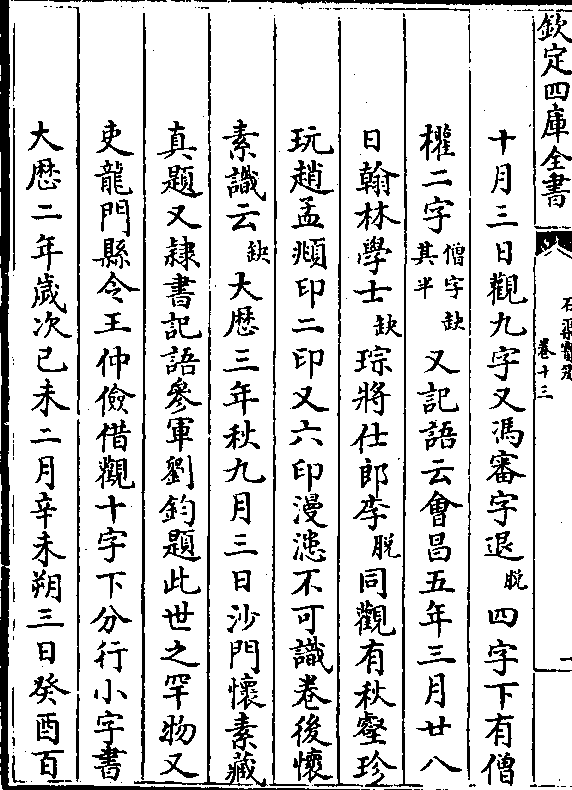 欽定四庫全書
石渠寶笈
卷十三
十月三日觀九字又馮審字退脱四字下有僧
權二字僧字缺其半又記語云會昌五年三月廿八
日翰林學士缺琮將仕郎李脱同觀有秋壑珍
玩趙孟頫印二印又六印漫漶不可識卷後懷
素識云缺大歴三年秋九月三日沙門懷素藏
真題又𨽻書記語參軍劉鈞題此世之罕物又
吏龍門縣令王仲儉借觀十字下分行小字書
大歴二年歲次己未二月辛未朔三日癸酉百